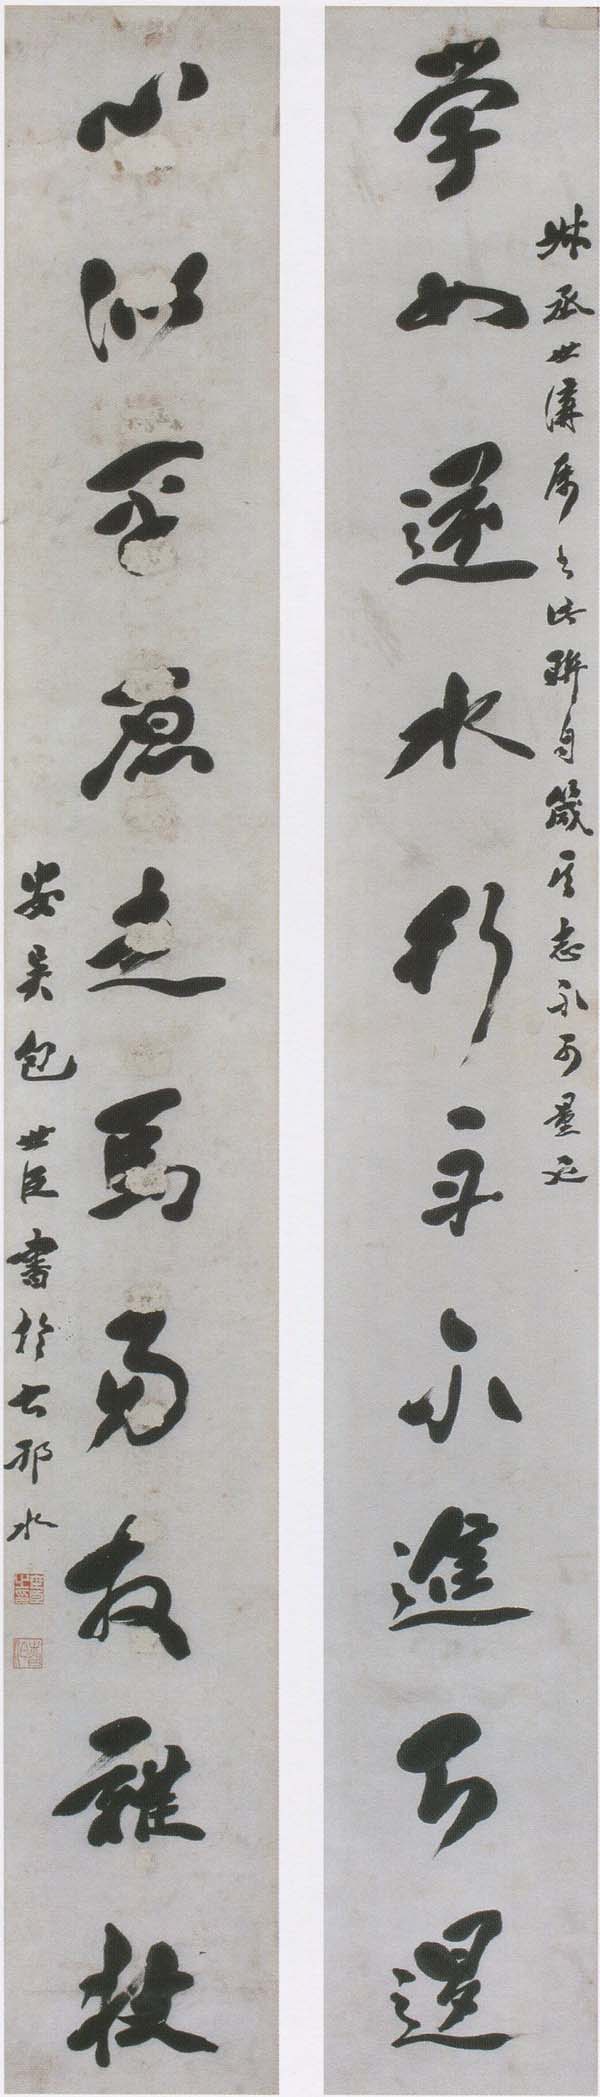 学如逆水行舟不進則退
丞世講属書此聯自箴其志不可量也
心似平原走馬易放難收
安吴包世臣書於古邗水